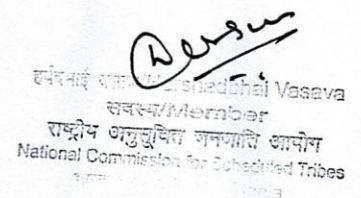 हर्षदभाई वसावा/Harshadbhai Vasava
सदस्य/Member
राष्ट्रीय अनुसूचित जनजाति आयोग
National Commission for Scheduled Tribes
India